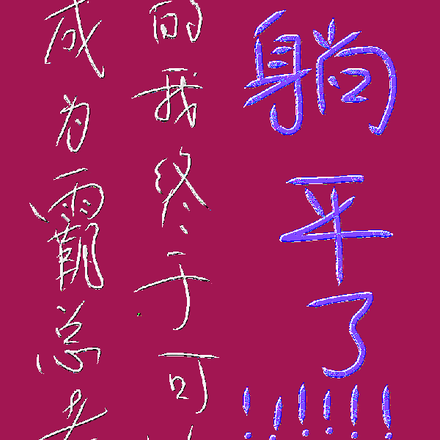 躺平了!!!!!!
的我终于可
成为霸总